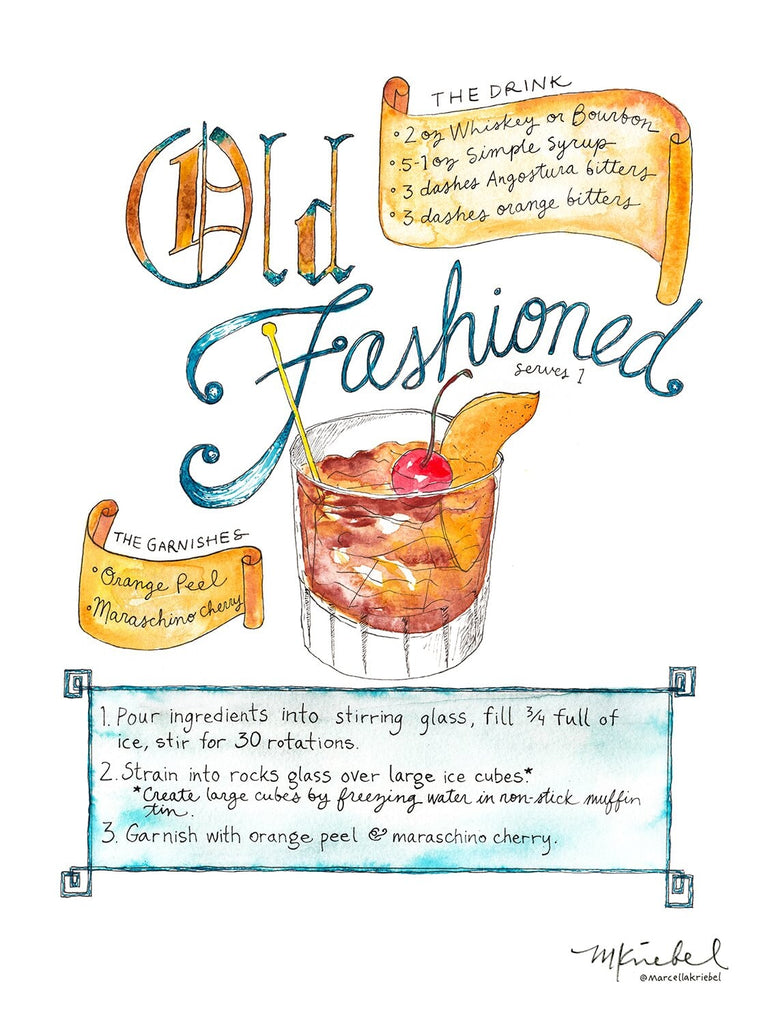 THE DRINK
• 2 oz Whiskey or Bourbon
• .5-1 oz Simple Syrup
• 3 dashes Angostura bitters
• 3 dashes orange bitters
Old
Fashioned
serves 1
THE GARNISHES
• Orange Peel
• Maraschino cherry
1. Pour ingredients into stirring glass, fill 3/4 full of
ice, stir for 30 rotations.
2. Strain into rocks glass over large ice cubes.*
*Create large cubes by freezing water in non-stick muffin
tin.
3. Garnish with orange peel & maraschino cherry.
MKriebel
@marcellakriebel